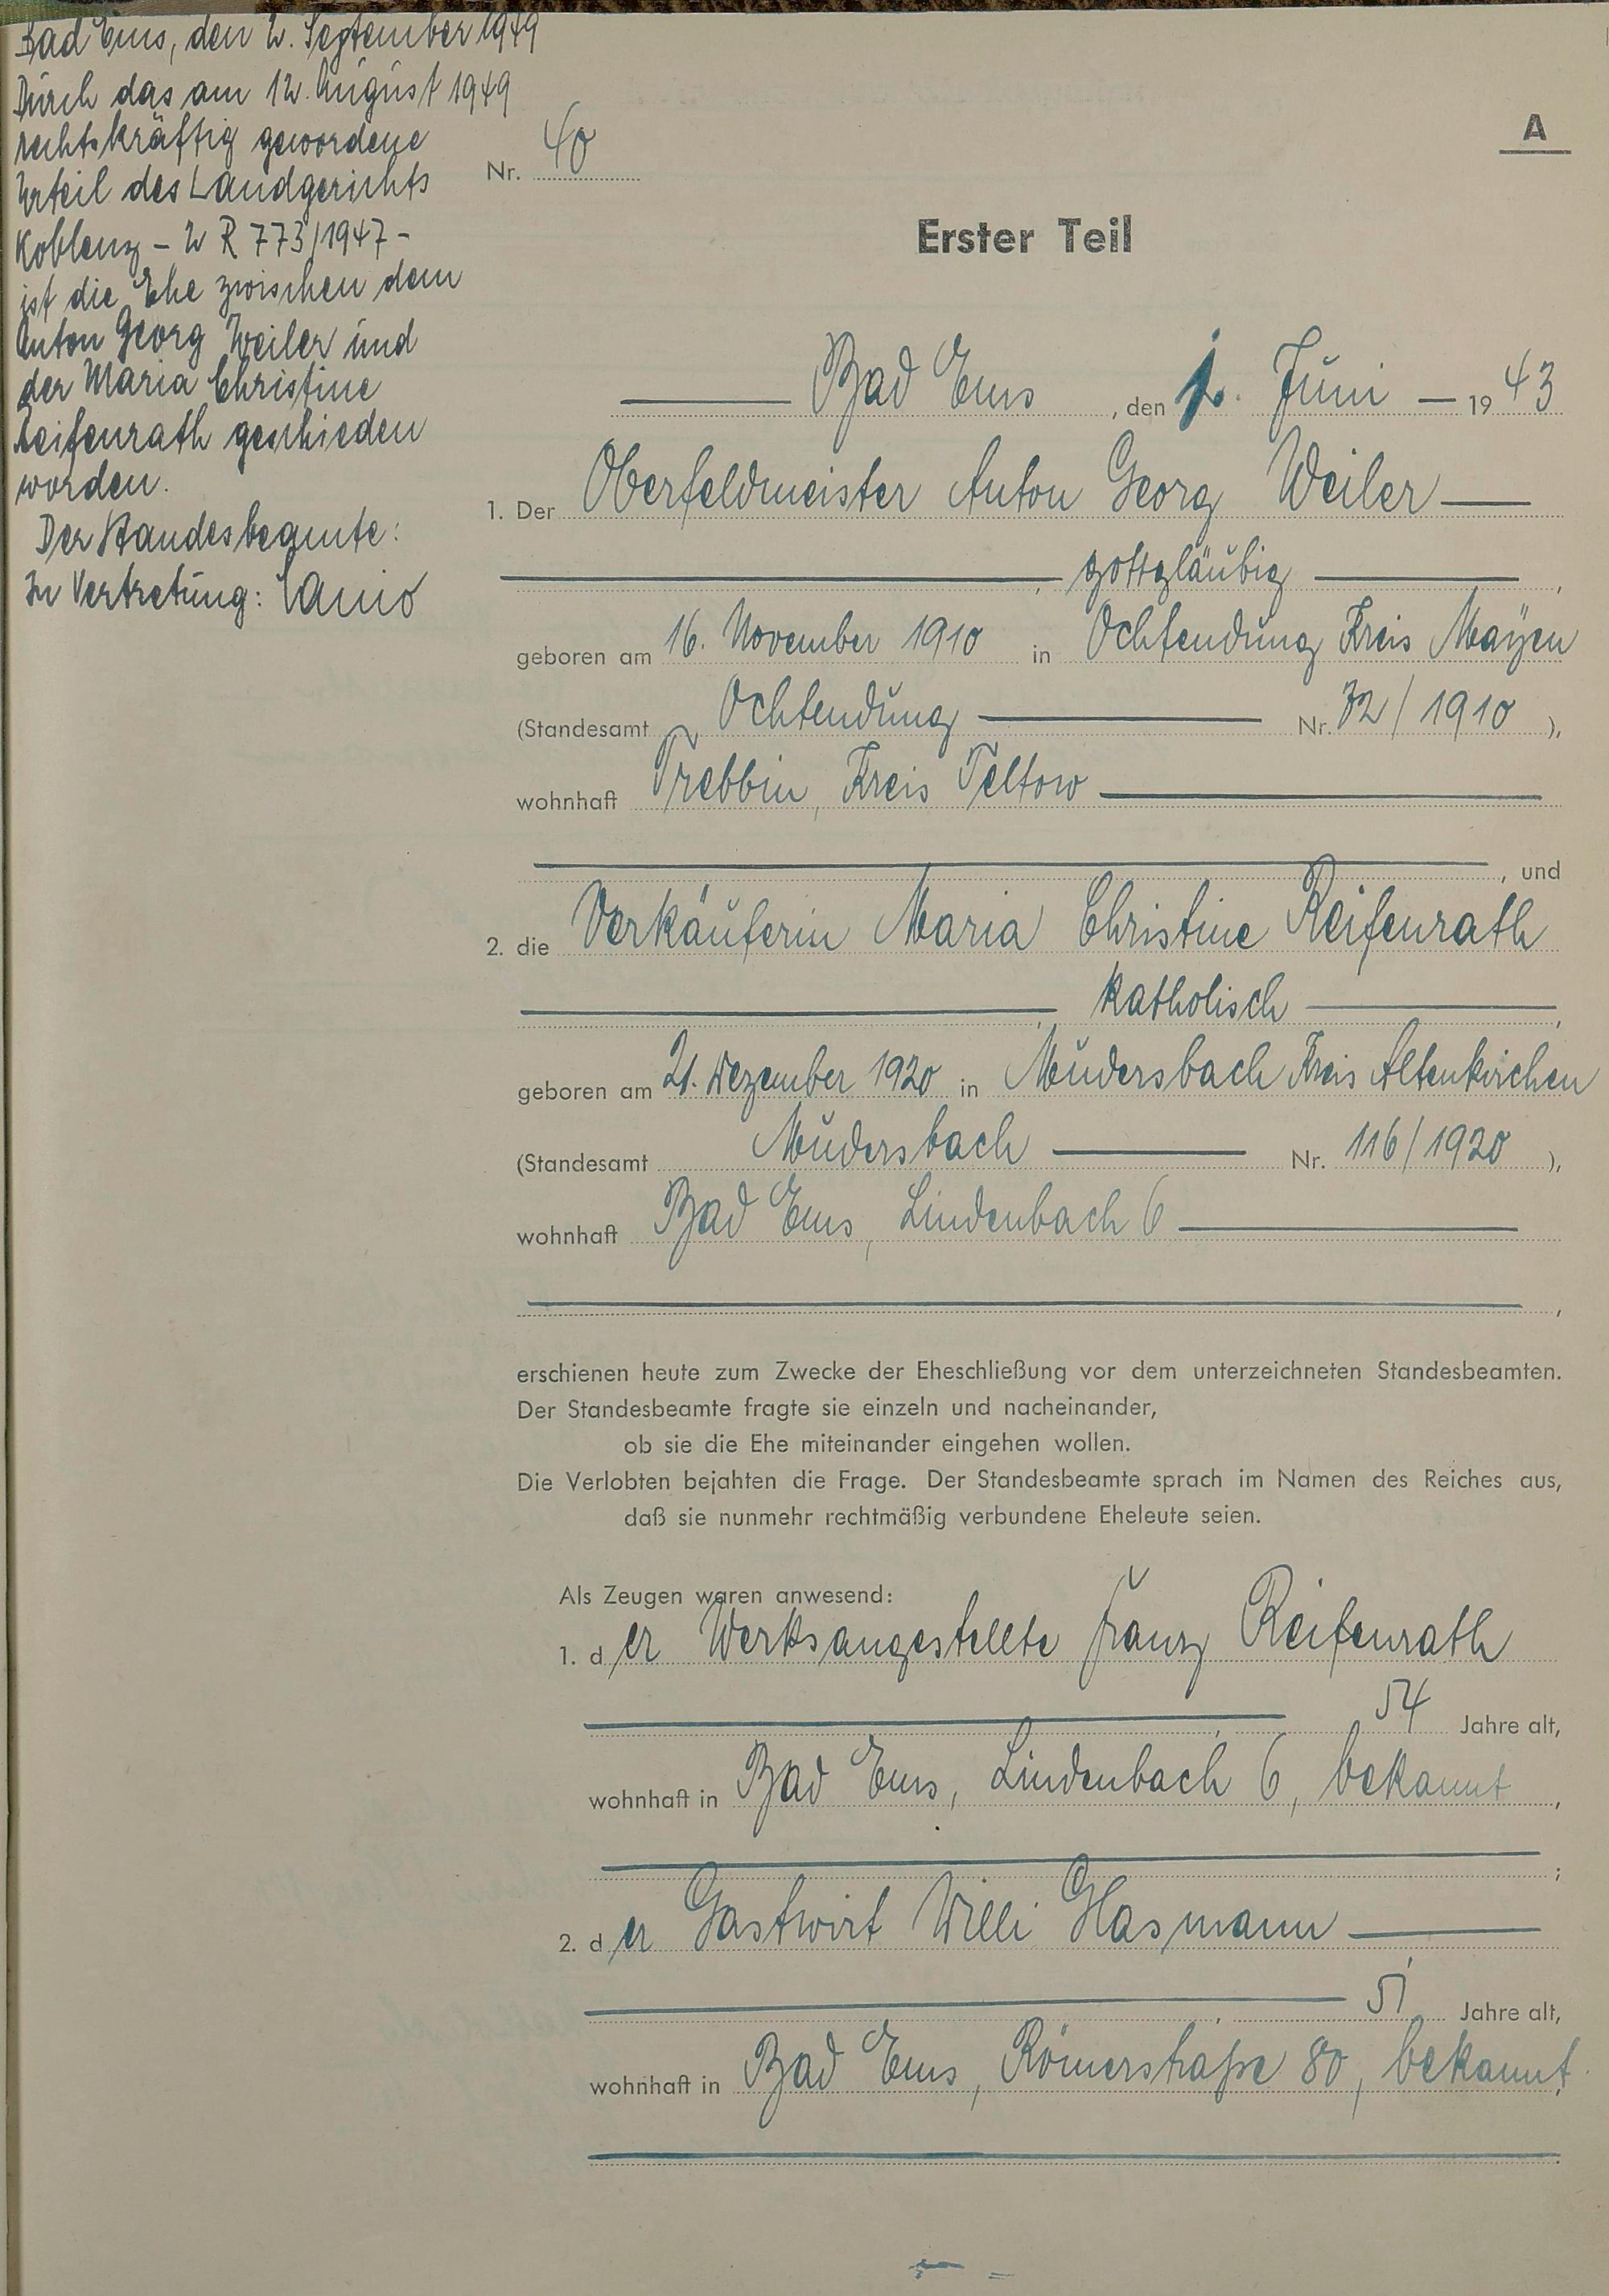 Bad Ems, den 2. September 1949
Durch das am 12. August 1949
rechtskräftig gewordene
Urteil des Landgerichts
Koblenz – 2 R 773/1947 –
ist die Ehe zwischen dem
Anton Georg Weiler und
der Maria Christine
Reifenrath geschieden
worden.
Der Standesbeamte:
In Vertretung:
A
Nr. 40
Erster Teil
Bad Ems, den Juni 1943
1. Der Oberfeldmeister Anton Georg Weiler
, gottgläubig,
geboren am 16. November 1910 in Ochtendung Kreis Mayen
(Standesamt Ochtendung Nr. 72/1910),
wohnhaft Trebbin, Kreis Teltow
, und
2. die Verkäuferin Maria Christine Reifenrath
, katholisch,
geboren am 21. Dezember 1920 in Mudersbach Kreis Altenkirchen
(Standesamt Mudersbach Nr. 116/1920),
wohnhaft Bad Ems, Lindenbach 6
,
erschienen heute zum Zwecke der Eheschließung vor dem unterzeichneten Standesbeamten.
Der Standesbeamte fragte sie einzeln und nacheinander,
ob sie die Ehe miteinander eingehen wollen.
Die Verlobten bejahten die Frage. Der Standesbeamte sprach im Namen des Reiches aus,
daß sie nunmehr rechtmäßig verbundene Eheleute seien.
Als Zeugen waren anwesend:
1. der Werksangestellte Franz Reifenrath
, 54 Jahre alt,
wohnhaft in Bad Ems, Lindenbach 6, bekannt,
;
2. der Gastwirt Willi Glasmann
, 51 Jahre alt,
wohnhaft in Bad Ems, Römerstraße 80, bekannt,
.